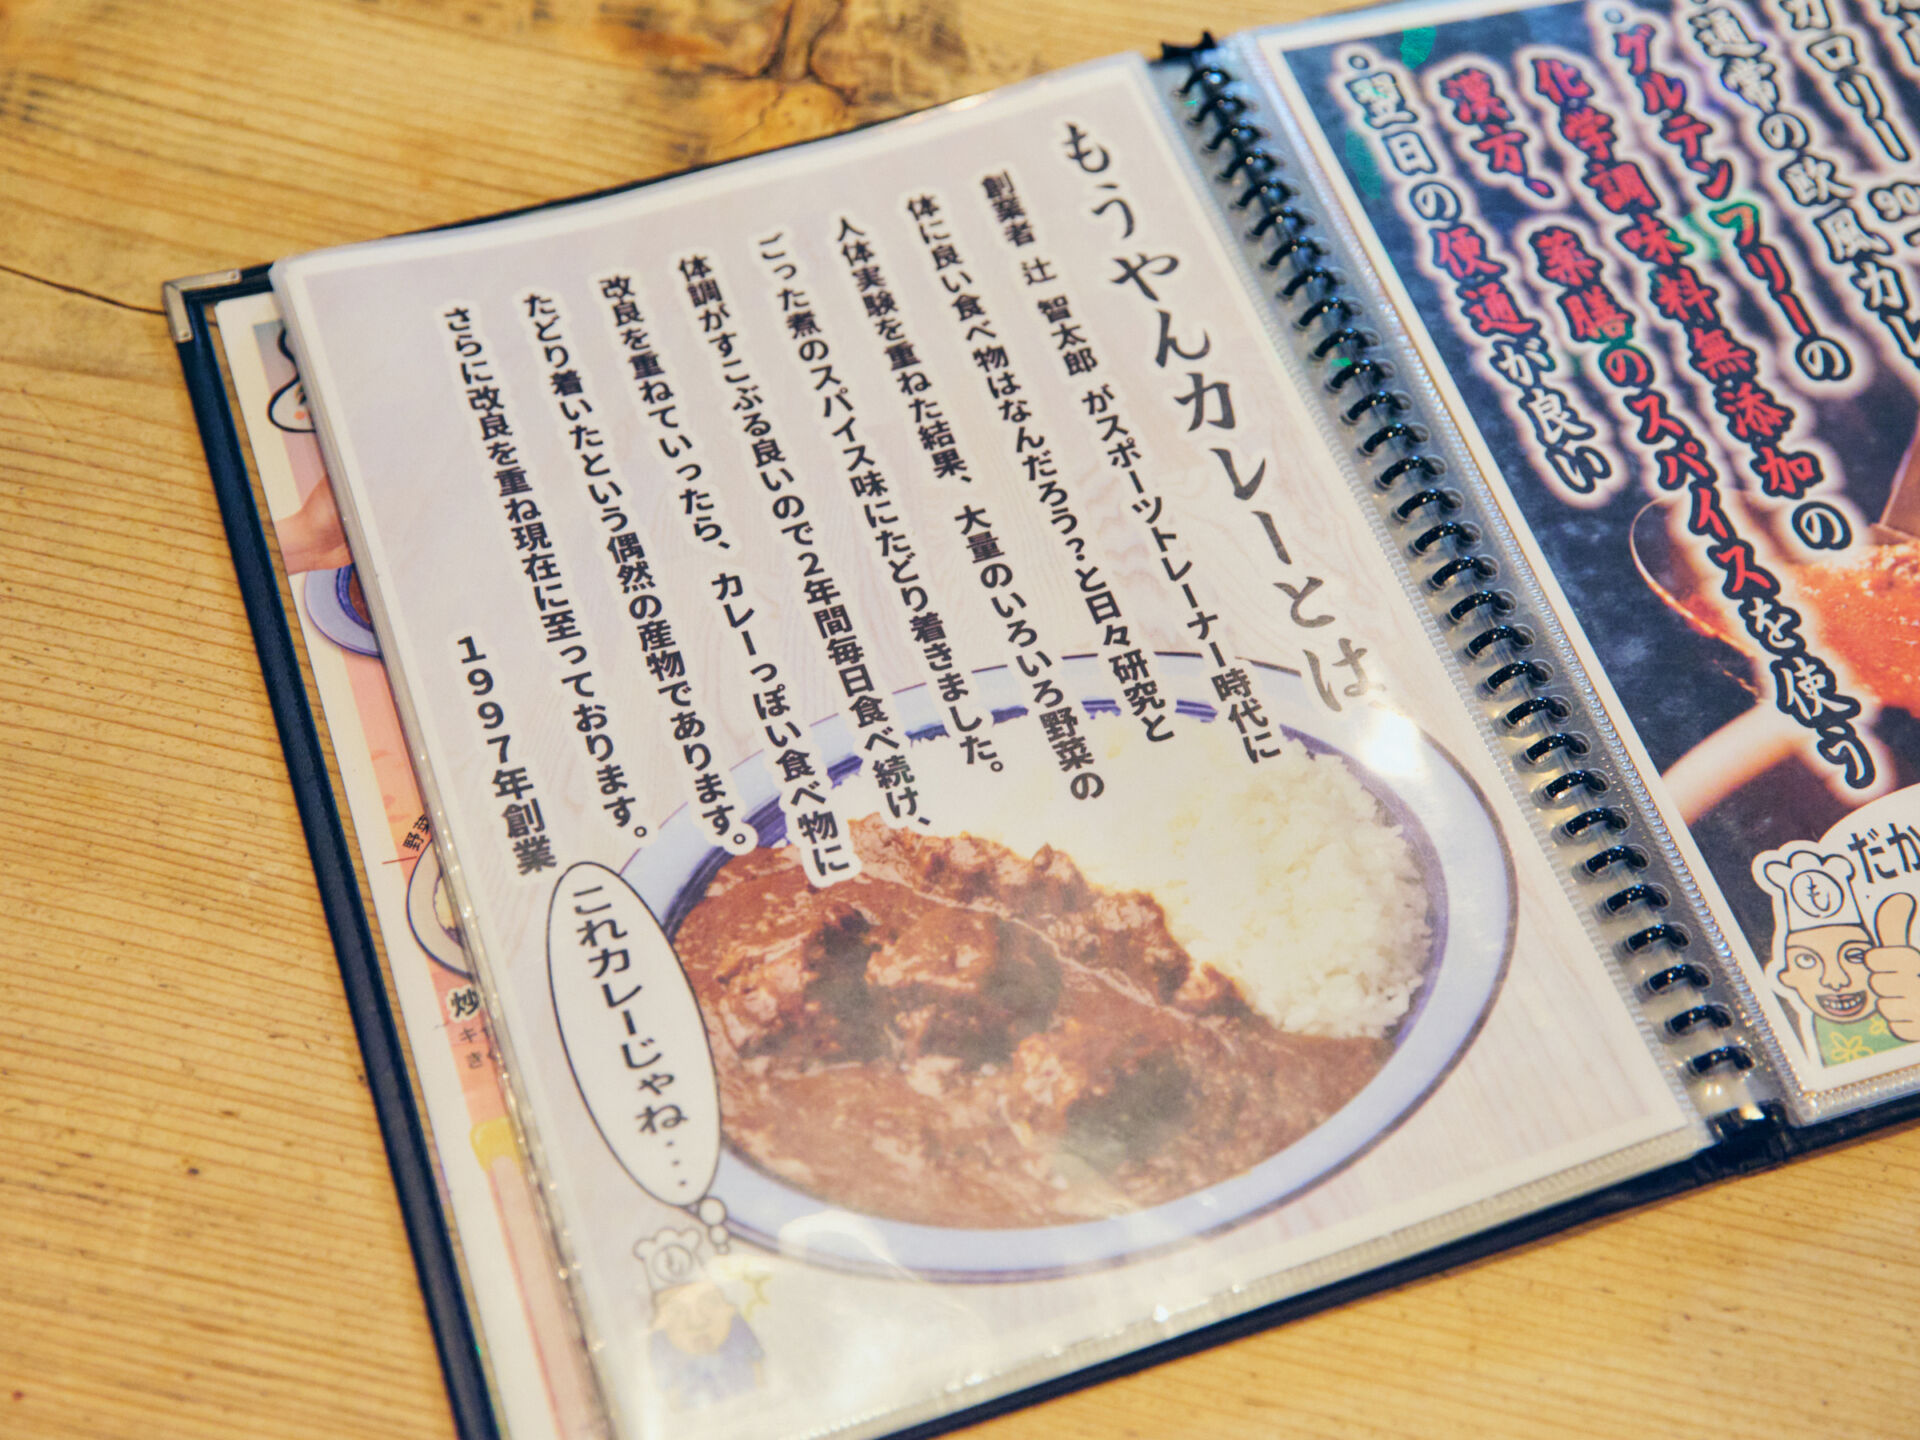 もうやんカレーとは
創業者 辻 智太郎 がスポーツトレーナー時代に
体に良い食べ物はなんだろう?と日々研究と
人体実験を重ねた結果、大量のいろいろ野菜の
ごった煮のスパイス味にたどり着きました。
体調がすこぶる良いので2年間毎日食べ続け、
改良を重ねていったら、カレーっぽい食べ物に
たどり着いたという偶然の産物であります。
さらに改良を重ね現在に至っております。
1997年創業
これカレーじゃね・・・
も
カロリー
90
通常の欧風カレ
・グルテンフリーの
化学調味料無添加の
漢方、薬膳のスパイスを使う
・翌日の便通が良い
だか
も
野菜
炒
キ
き